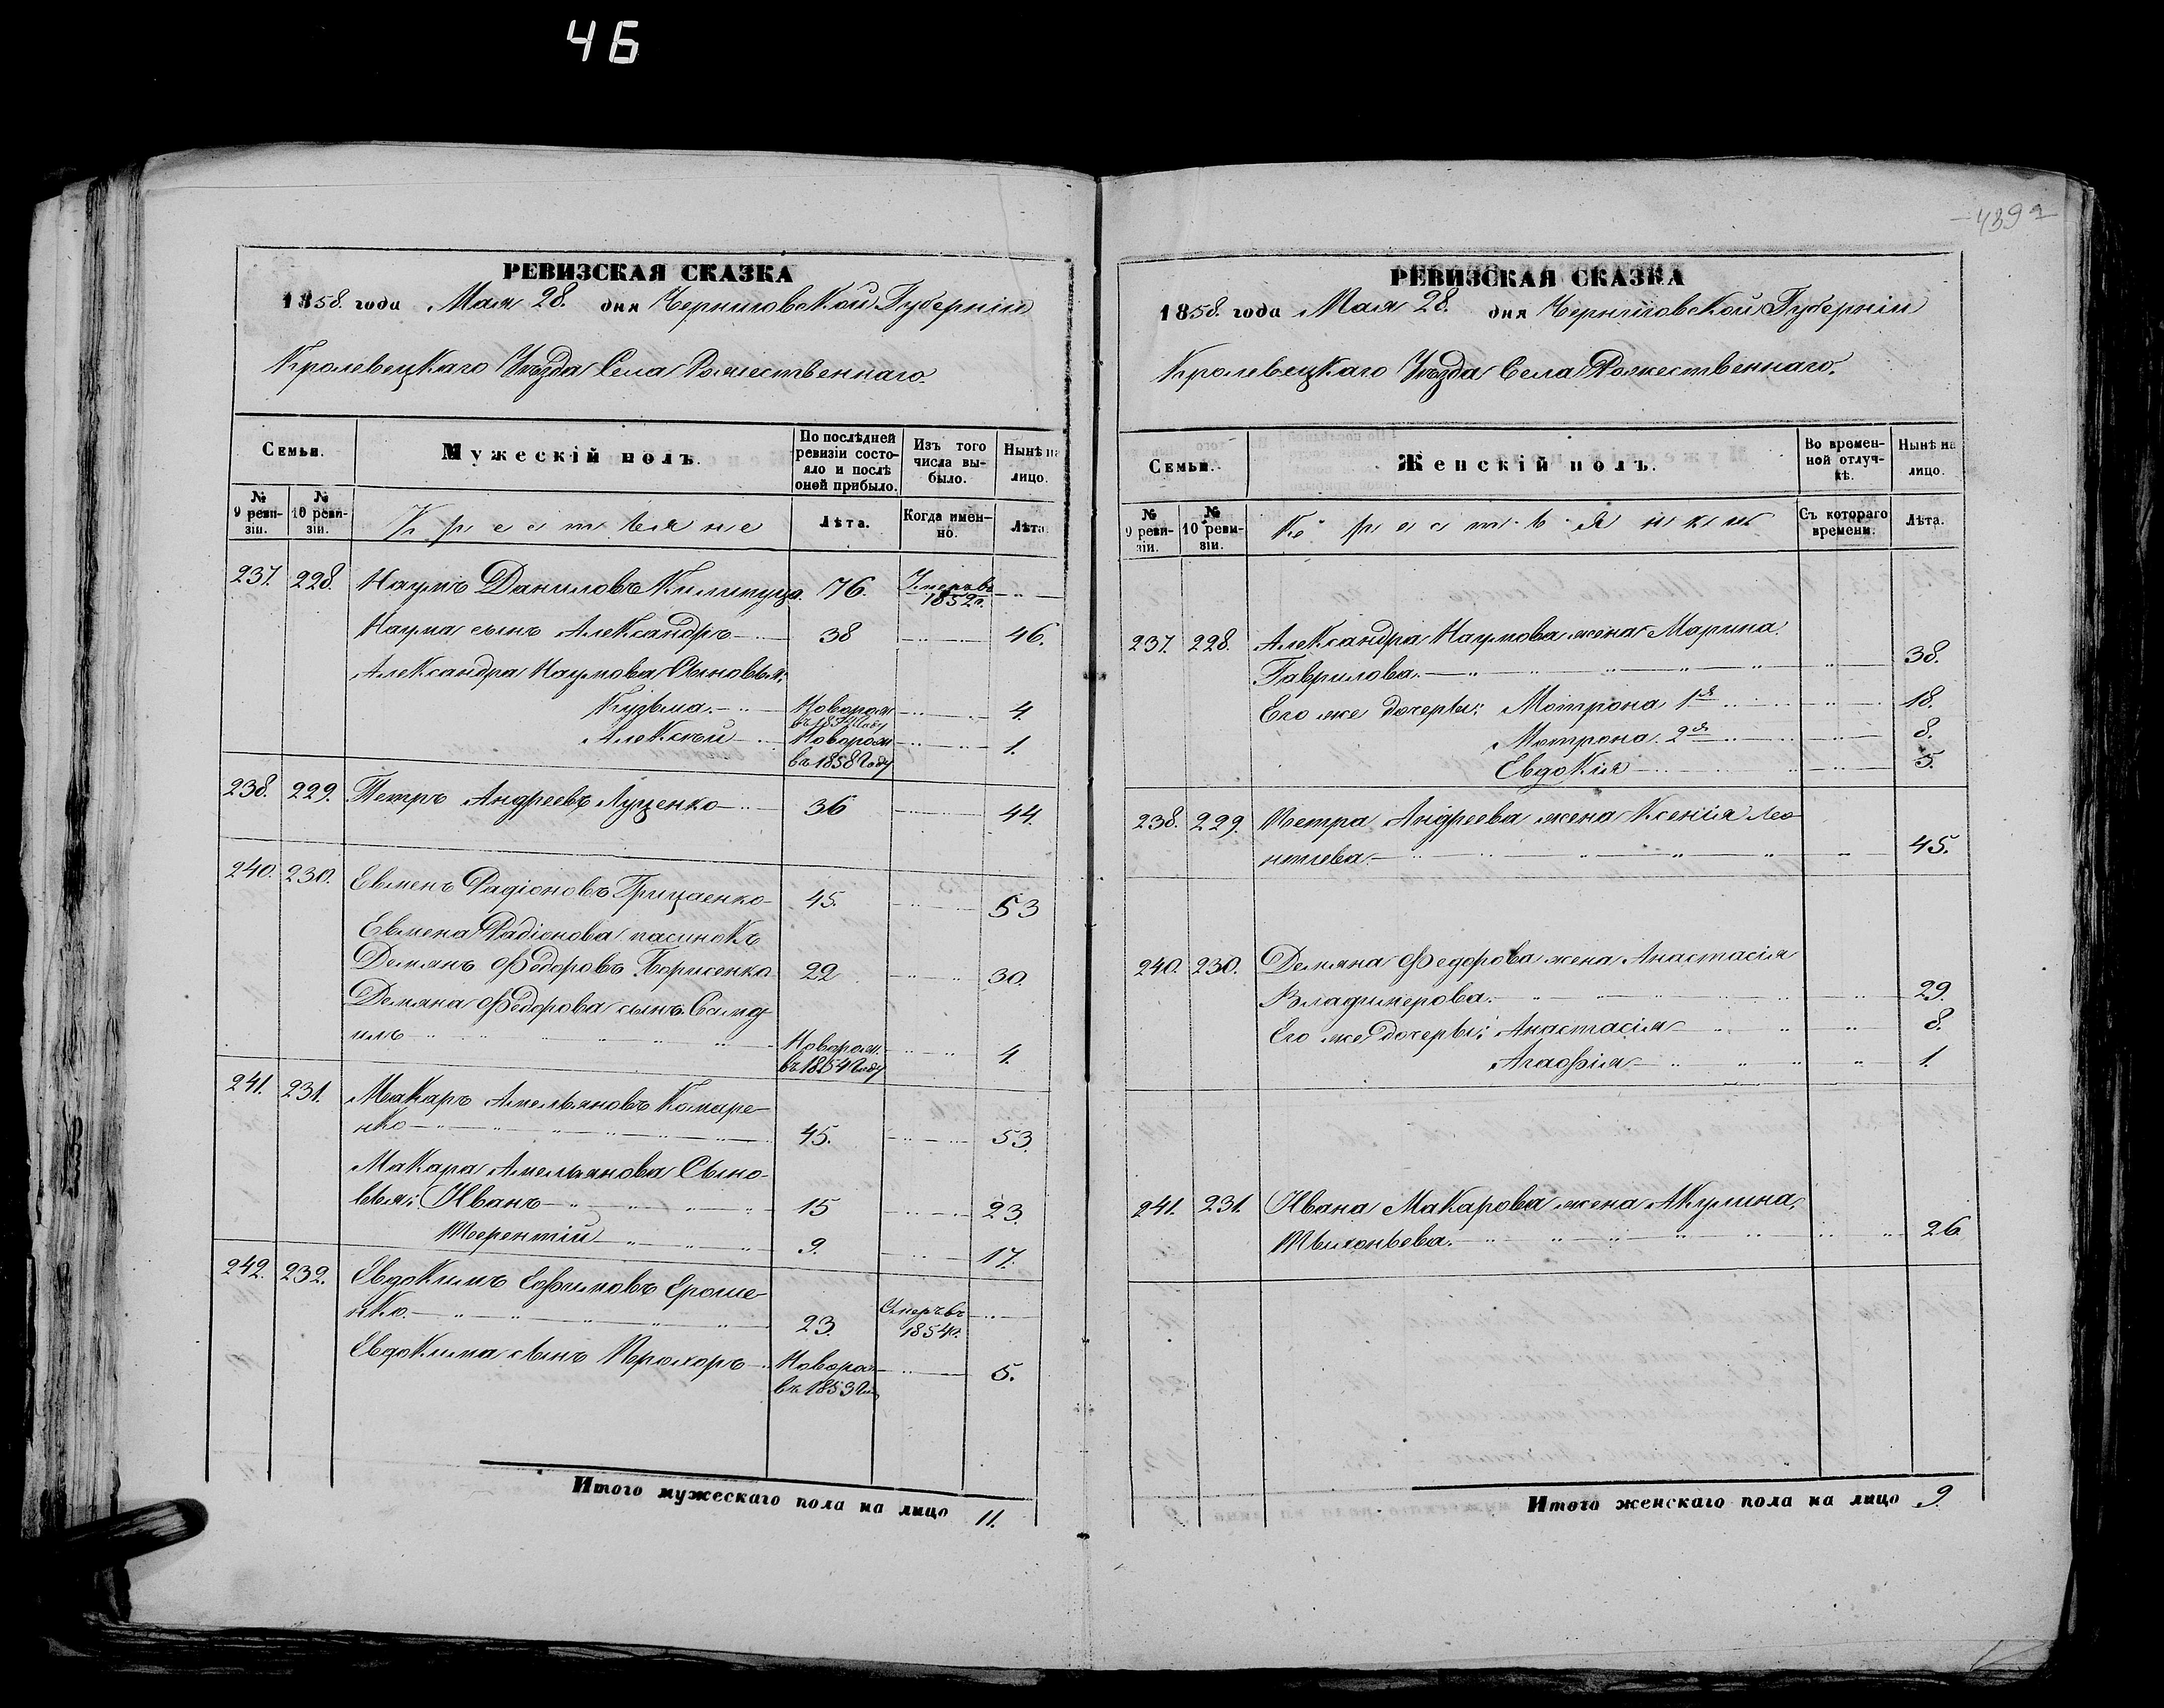 46
439
РЕВИЗСКАЯ СКАЗКА
1858. года Мая 28. дня Черниговской Губерніи
Кролевецкаго Уѣзда Села Рожественнаго.
Семьи.
Мужескій полъ.
По послѣдней ревизіи состояло и послѣ оной прибыло.
Изъ того числа выбыло.
Нынѣ на лицо.
№ 9 ревизіи.
№ 10 ревизіи.
Крестьяне
Лѣта.
Когда именно.
Лѣта.
237. 228. Наумъ Даниловъ 76. Умеръ въ 1852г.
Наума сынъ Александръ 38 46.
Александра Наумова Сыновья:
Кузьма. Новорож въ 1854 Году 4.
Алексѣй Новорож въ 1858 Году 1.
238. 229. Петръ Андреевъ Луценко 36 44.
240. 230. Евменъ Радіоновъ Грицаенко 45. 53
Евмена Радіонова пасинокъ
Демянъ Федоровъ Борисенко 22 30.
Демяна Федорова сынъ Самой-
илъ Новорож. въ 1854 Году 4.
241. 231. Макаръ Амельяновъ Комаре-
нко 45. 53.
Макара Амельянова Сыно-
вья: Иванъ 15 23.
Терентій 9. 17.
242. 232. Евдокимъ Ефимовъ Ероше-
нко. 23. Умеръ въ 1854г.
Евдокима сынъ Прохоръ Новорож въ 1853 Го 5.
Итого мужескаго пола на лицо 11.
РЕВИЗСКАЯ СКАЗКА
1858. года Мая 28. дня Черниговской Губерніи
Кролевецкаго Уѣзда Села Рожественнаго.
Семьи.
Женскій полъ.
Во временной отлучкѣ.
Нынѣ на лицо.
№ 9 ревизіи.
№ 10 ревизіи.
Крестьянки
Съ котораго времени.
Лѣта.
237. 228. Александра Наумова жена Марина
Гаврилова. 38.
Его же дочери: Мотрона 1я 18.
Мотрона 2я 8.
Евдокія 5.
238. 229. Петра Андреева жена Ксенія Лео-
нтіева. 45.
240. 230. Демяна Федорова жена Анастасія
Владимерова. 29.
Его же дочери: Анастасія 8.
Агафія 1.
241. 231. Ивана Макарова жена Акулина
26
Итого женскаго пола на лицо 9.